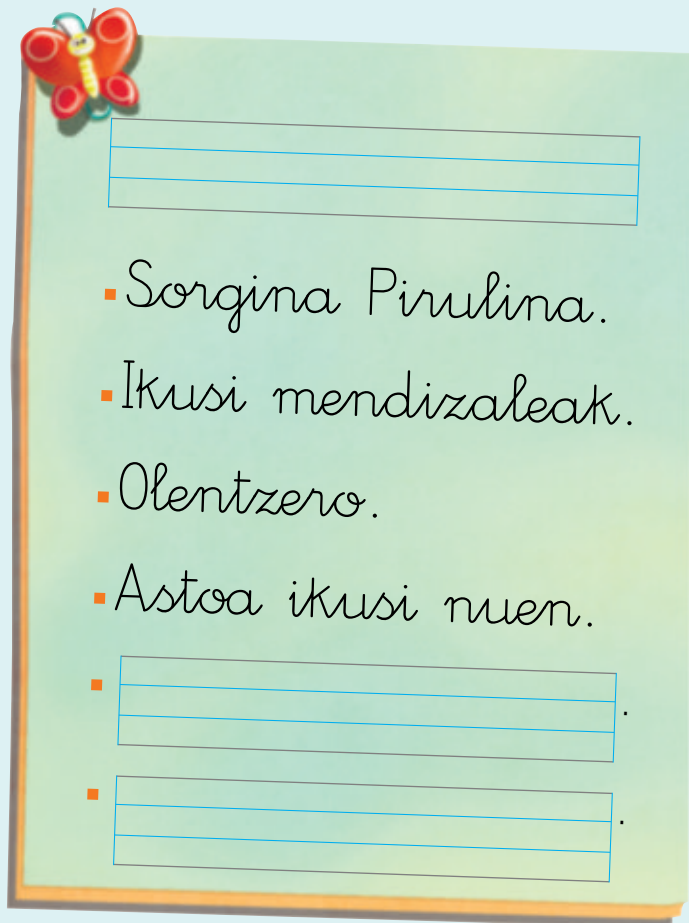 Sorgina Pirulina.
Ikusi mendizaleak.
Olentzero.
Astoa ikusi nuen.
.
.